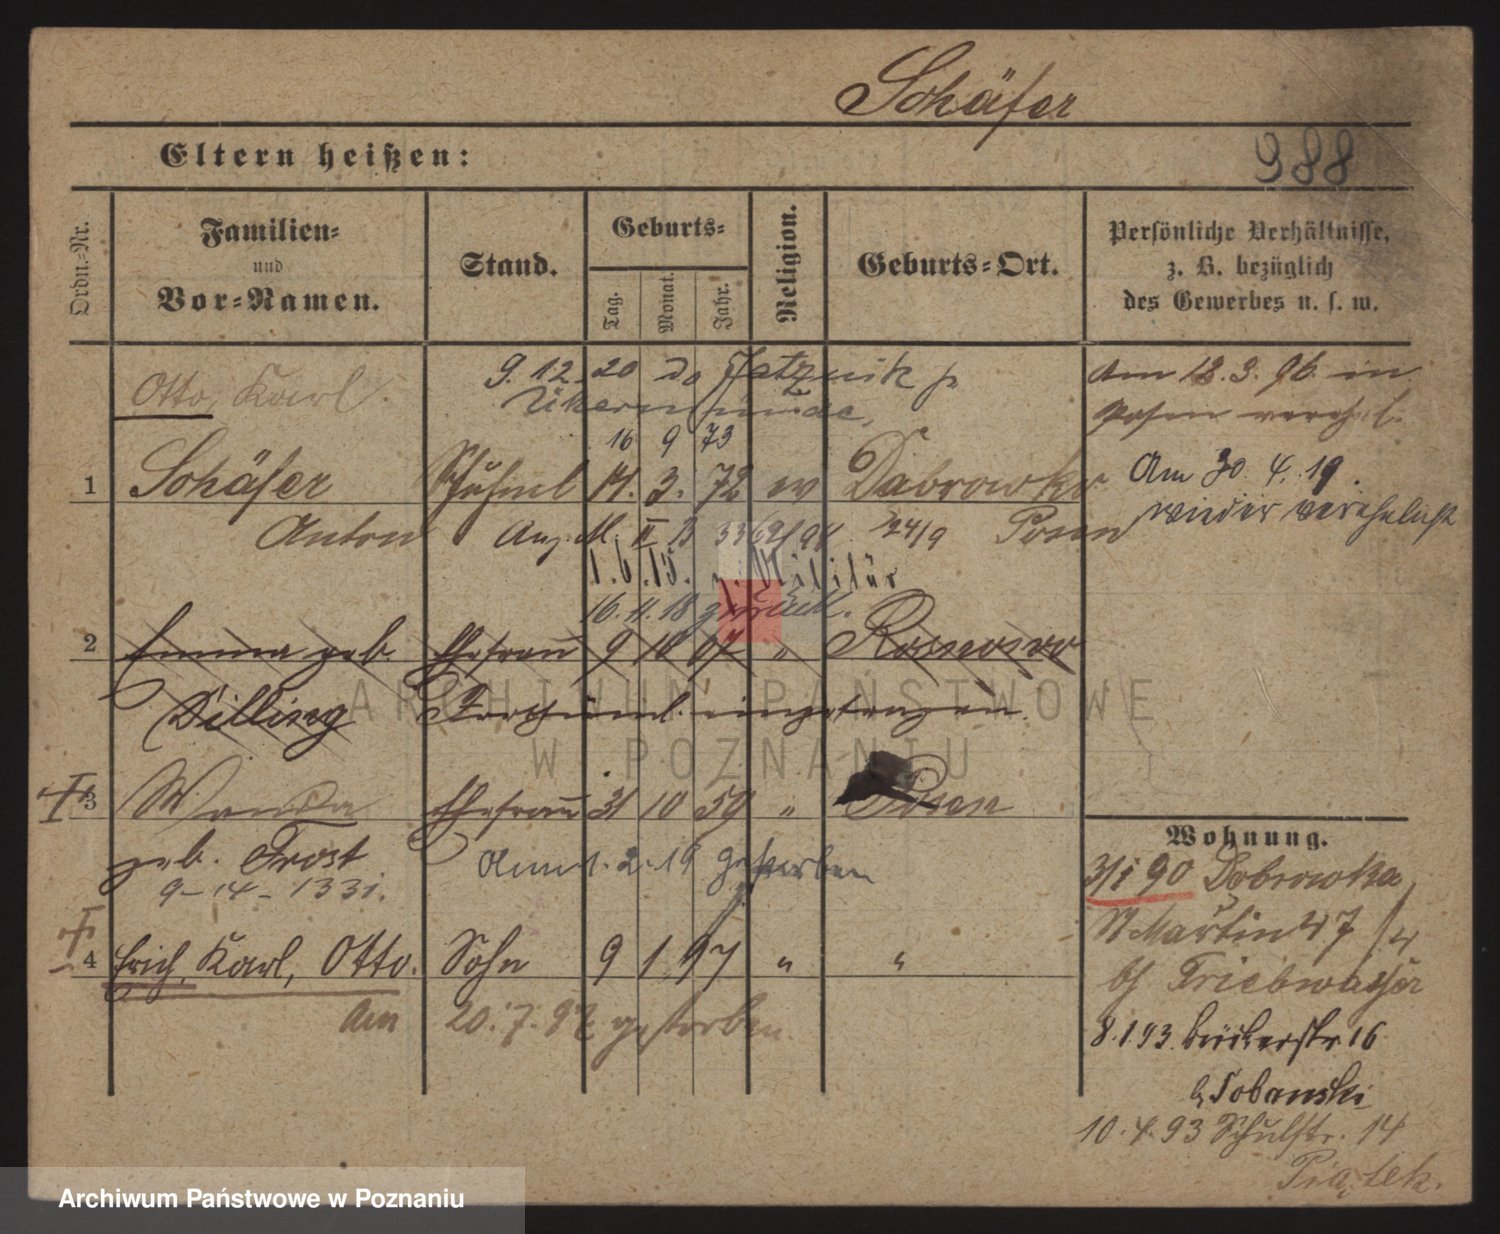 Schäfer
Eltern heißen:
988
Ordn.-Nr.
Familien-
und
Vor-Namen.
Stand.
Geburts-
Tag.
Monat.
Jahr.
Religion.
Geburts-Ort.
Persönliche Verhältnisse,
z. B. bezüglich
des Gewerbes u. s. w.
Otto, Karl
9. 12. 20 Jatznik
Ükermünde
Am 12. 3. 96. in
Posen verehel.
16 9 73
1 Schäfer Schuhml 14. 3. 72 ev Dabrowka
Am 30. 4. 19.
wieder verehelicht
Anton 24/9 Posen
1. 6. 15. z. Militär
16. 11. 18 zurück.
2 Emma geb. Ehefrau 9 10 07 "
Dilling eingetragen.
3 Wanda Ehefrau 31 10 59 " Posen
geb. Frost Am 1. 2. 19 gestorben
9-14-1331.
4 Erich, Karl, Otto. Sohn 9 1 97 " "
Am 20. 7. 97 gestorben.
Wohnung.
3/1 90 Dobrowka
St Martin 47
b/ Friebwasser
8.1.93. Bäckerstr 16
b/ Sobanski
10. 4. 93 Schulstr. 14
Piątek.
ARCHIWUM PAŃSTWOWE
W POZNANIU
Archiwum Państwowe w Poznaniu